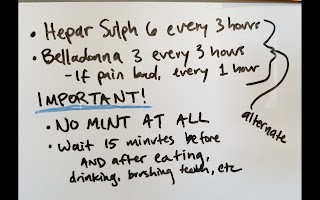 • Hepar Sulph 6 every 3 hours
• Belladonna 3 every 3 hours
- If pain bad, every 1 hour
alternate
IMPORTANT!
• NO MINT AT ALL
• Wait 15 minutes before
AND after eating,
drinking, brushing teeth, etc